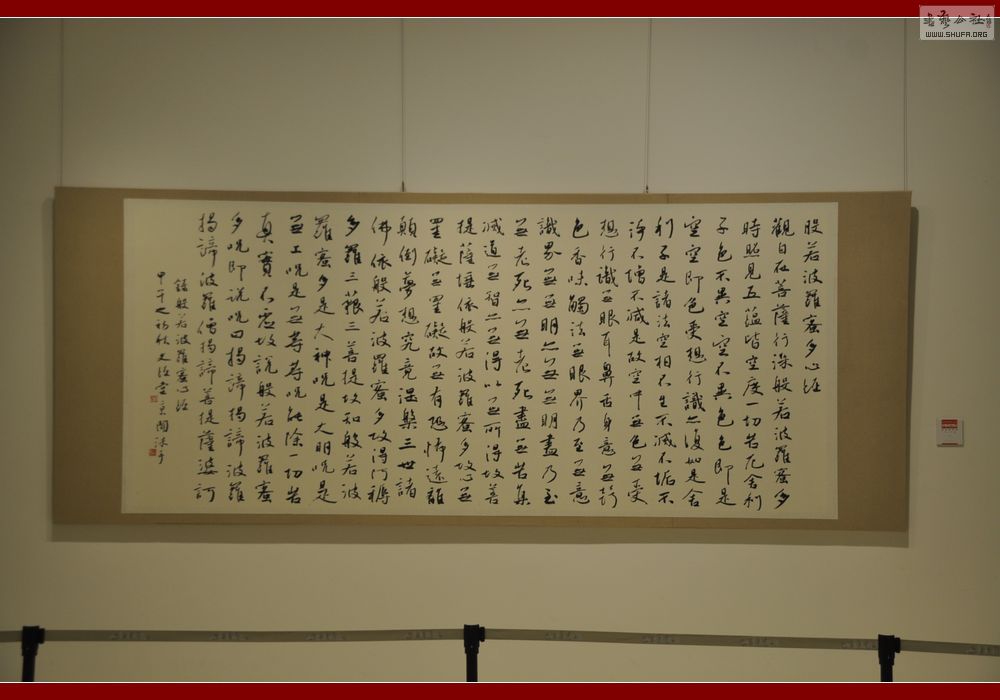 書藝公社
WWW.SHUFA.ORG
般若波羅蜜多心經
觀自在菩薩行深般若波羅蜜多
時照見五蘊皆空度一切苦厄舍利
子色不異空空不異色色即是
空空即色受想行識亦復如是舍
利子是諸法空相不生不滅不垢不
淨不增不減是故空中無色無受
想行識無眼耳鼻舌身意無
色香味觸法無眼界乃至無意
識界無無明亦無無明盡乃至
無老死亦無老死盡無苦集
滅道無智亦無得以無所得故菩
提薩埵依般若波羅蜜多故心無
罣礙無罣礙故無有恐怖遠離
顛倒夢想究竟涅槃三世諸
佛依般若波羅蜜多故得阿耨
多羅三藐三菩提故知般若波
羅蜜多是大神咒是大明咒是
無上咒是無等等咒能除一切苦
真實不虛故說般若波羅蜜
多咒即說咒曰揭諦揭諦波羅
揭諦波羅僧揭諦菩提薩婆訶
錄般若波羅蜜心經
甲午之初秋